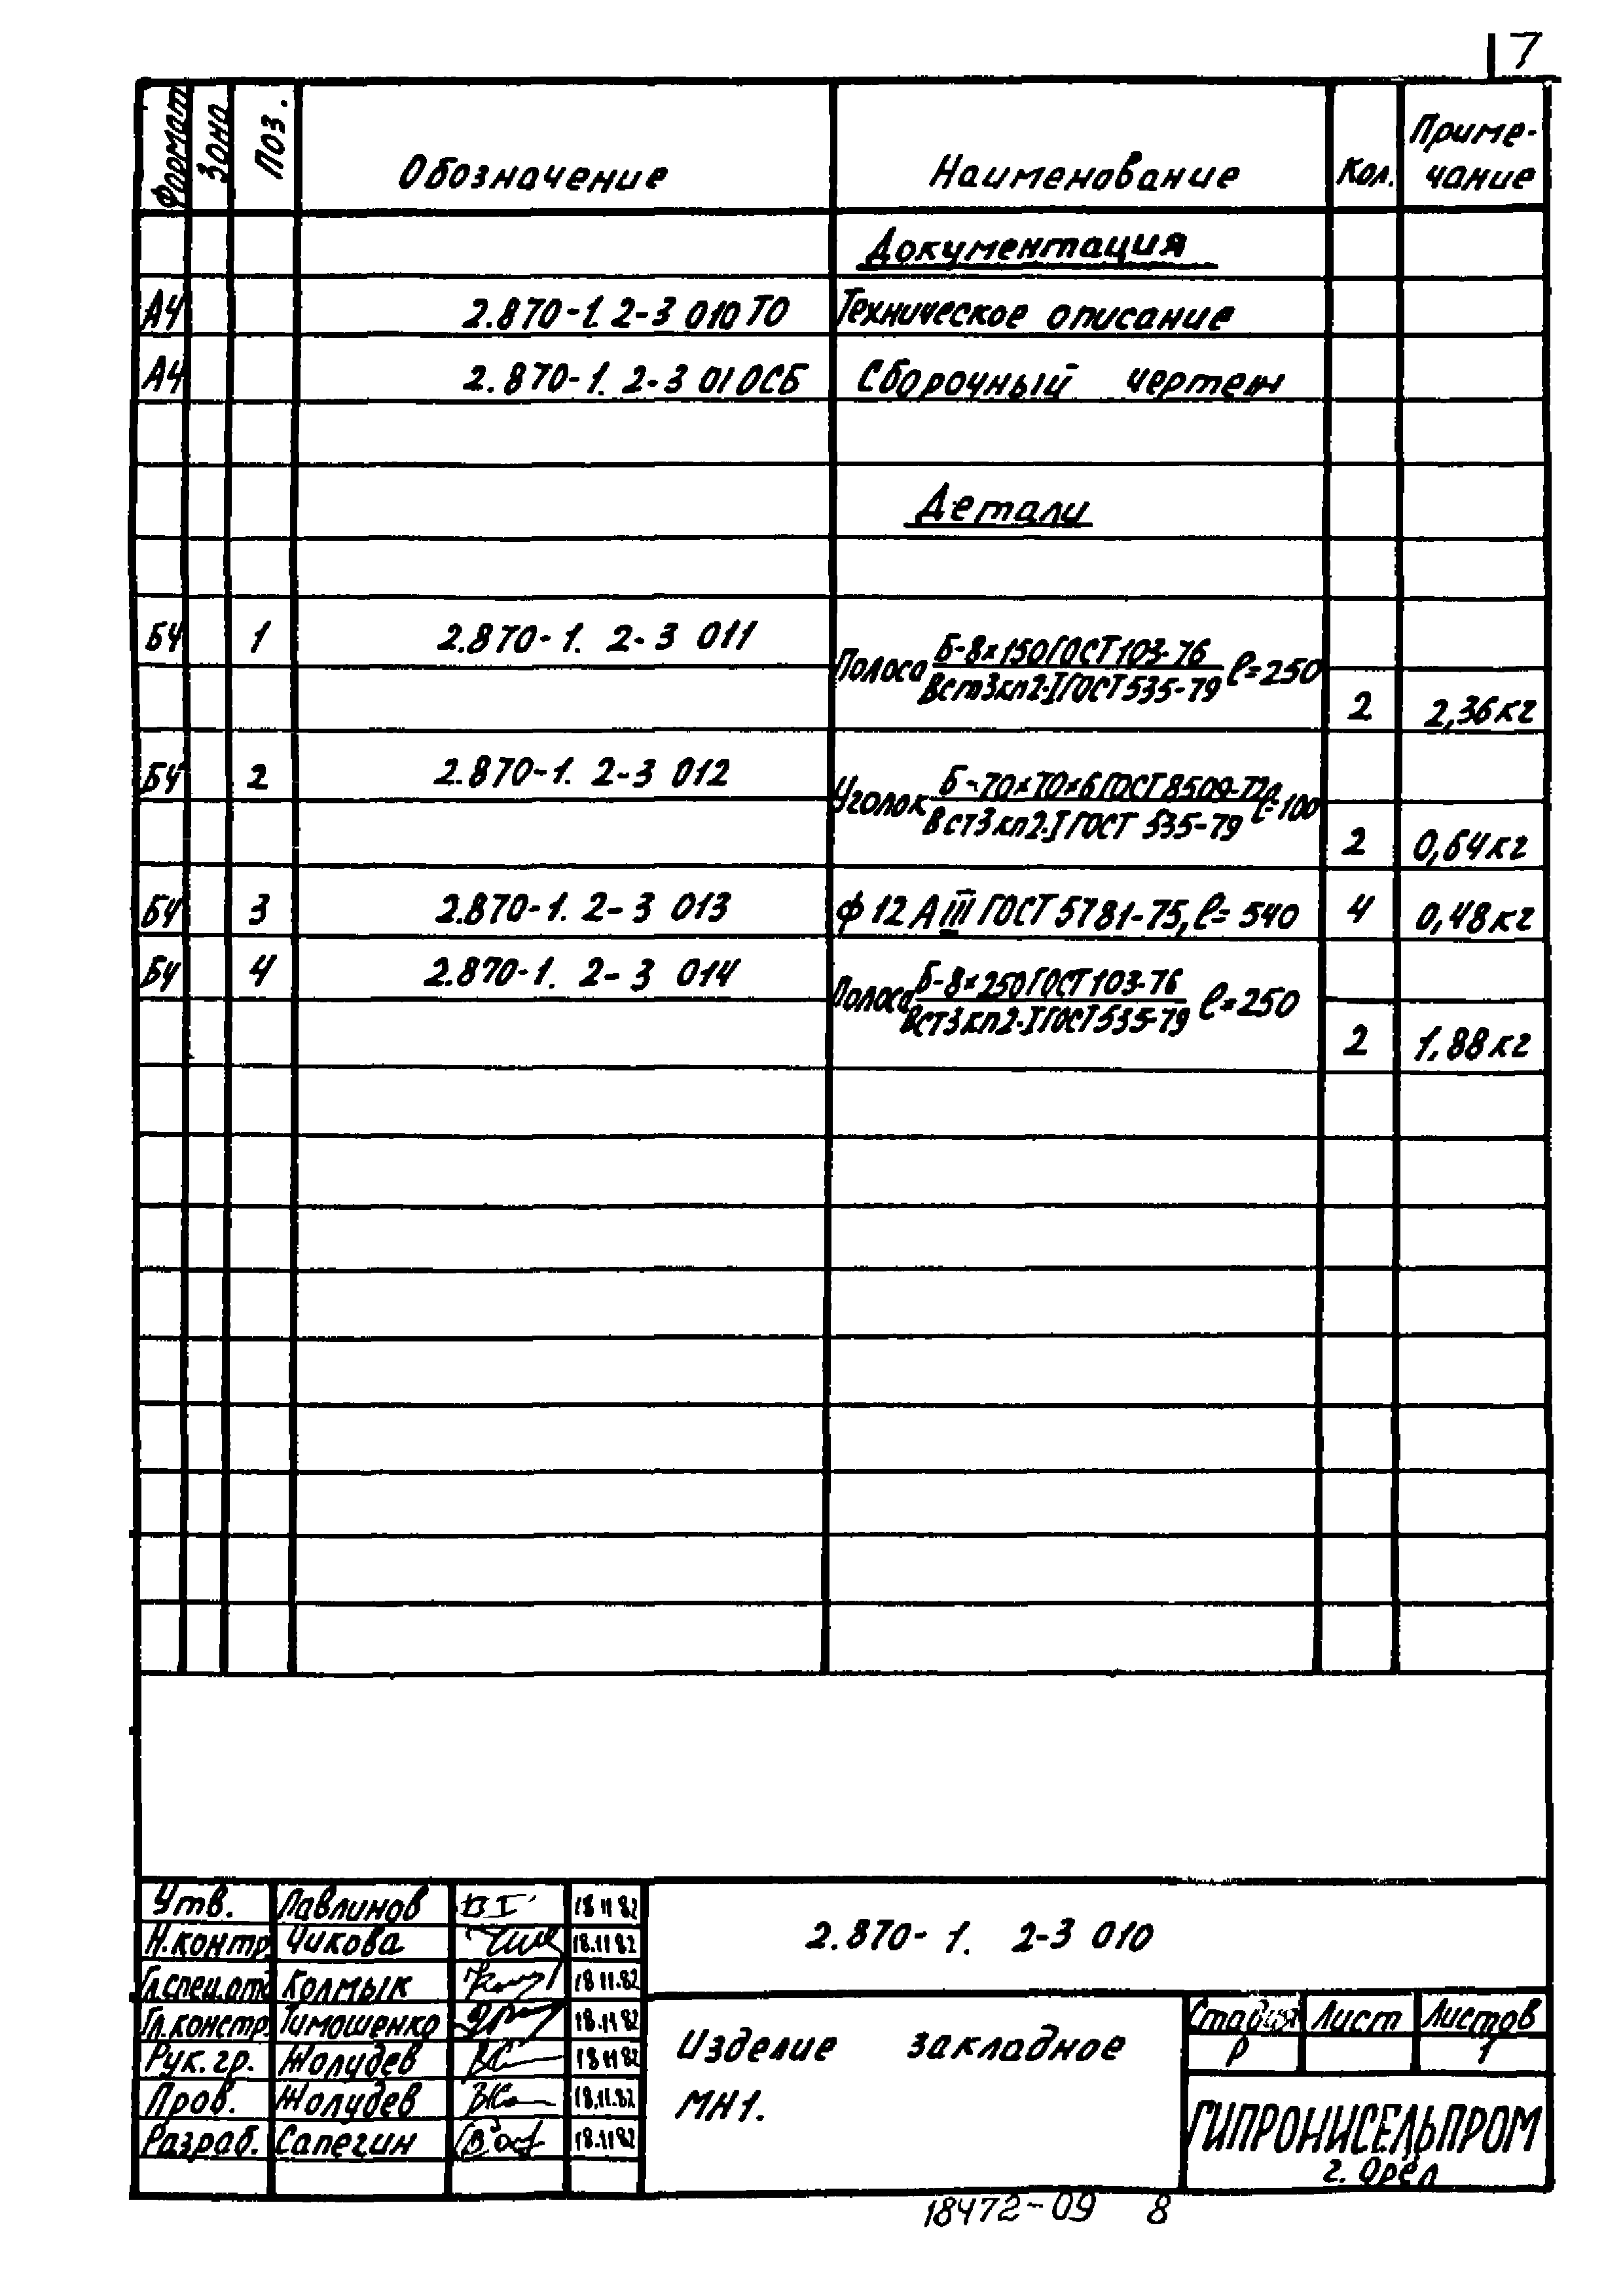 7
Формат Зона Поз. Обозначение Наименование Кол. Приме-
чание
Документация
А4 2.870-1. 2-3 010 ТО Техническое описание
А4 2.870-1. 2-3 010СБ Сборочный чертеж
Детали
Б4 1 2.870-1. 2-3 011 Полоса Б-8×150 ГОСТ 103-76 / ВСт3кп2-I ГОСТ 535-79 ℓ=250 2 2,36кг
Б4 2 2.870-1. 2-3 012 Уголок Б-70×70×6 ГОСТ 8509-72 / ВСт3кп2-I ГОСТ 535-79 ℓ=100 2 0,64кг
Б4 3 2.870-1. 2-3 013 ф12 АIII ГОСТ 5781-75, ℓ=540 4 0,48кг
Б4 4 2.870-1. 2-3 014 Полоса Б-8×250 ГОСТ 103-76 / ВСт3кп2-I ГОСТ 535-79 ℓ=250 2 1.88кг
Утв. Павлинов 18 11 82
Н.контр. Чикова 18.11 82
Гл.спец.отд Колмык 18 11.82
Гл.констр. Тимошенко 18.11 82
Рук.гр. Жолудев 18 11 82
Пров. Жолудев 18.11.82
Разраб. Сапегин 18.11 82
2.870-1. 2-3 010
Изделие закладное
МН1.
Стадия Лист Листов
Р 1
ГИПРОНИСЕЛЬПРОМ
г. Орёл
18472-09 8